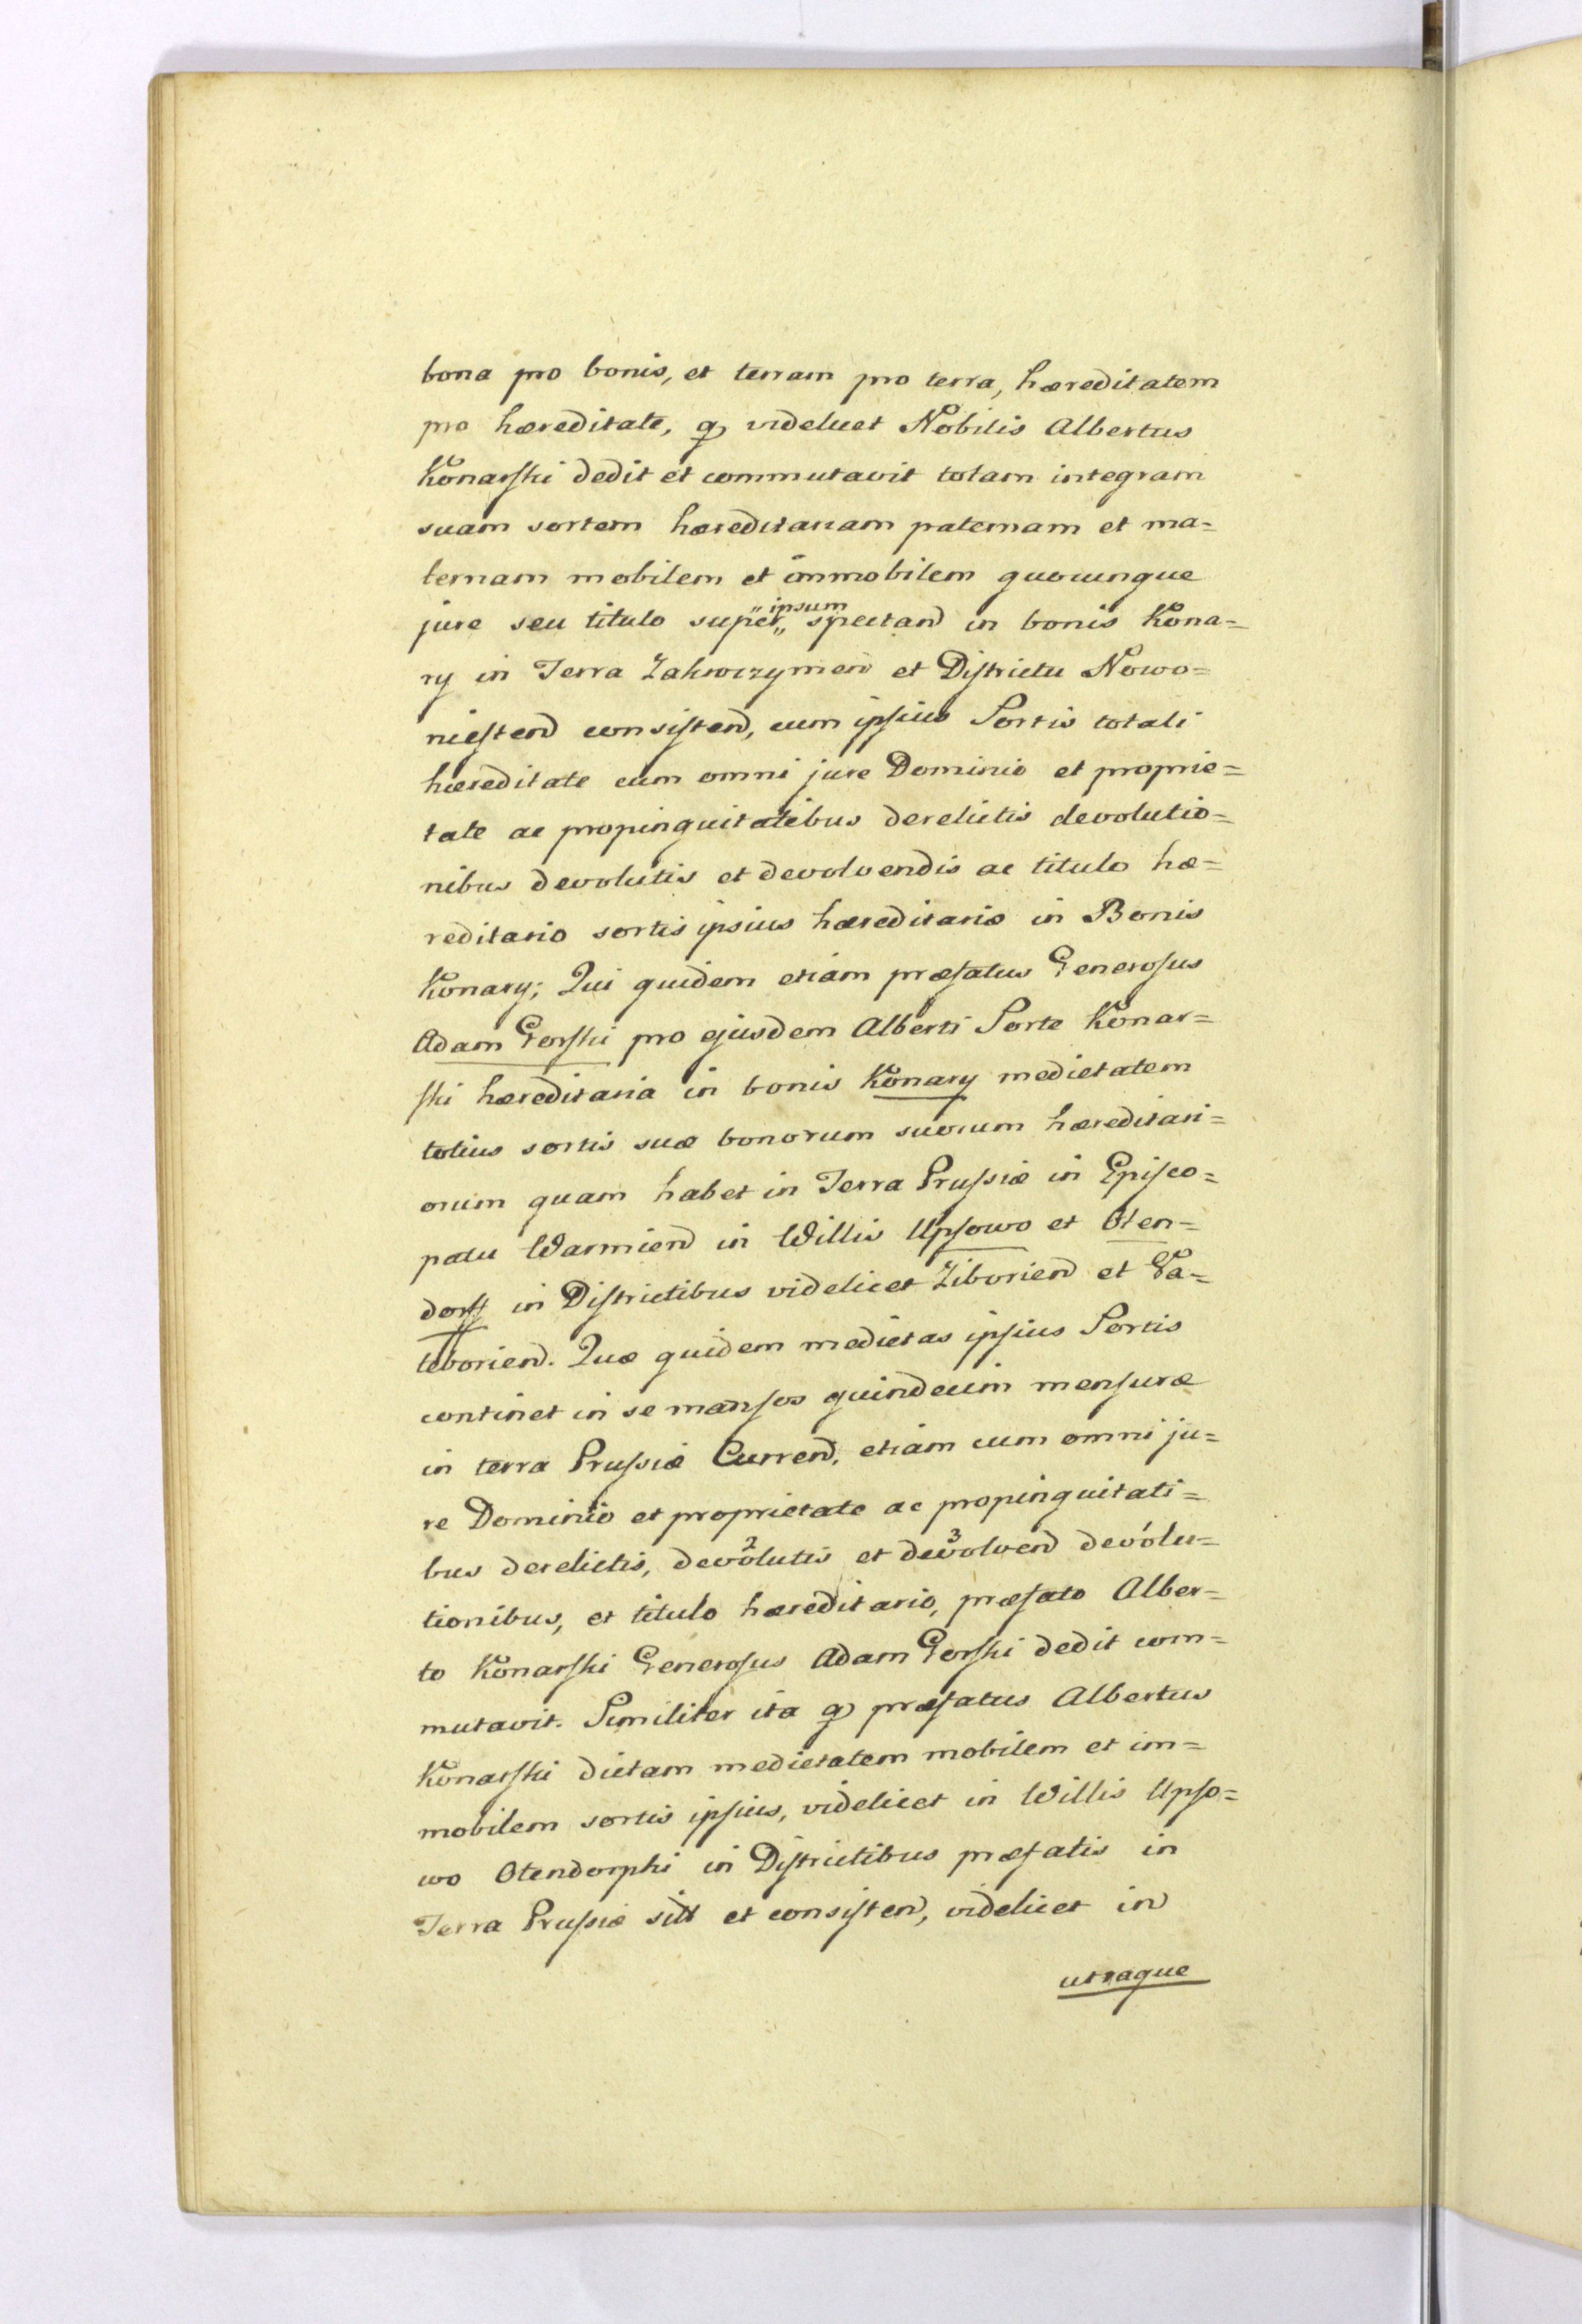 bona pro bonis, et terram pro terra, hæreditatem
pro hæreditate, q videlicet Nobilis Albertus
Konarski dedit et commutavit totam integram
suam sortem hæreditariam paternam et ma=
ternam mobilem et immobilem quocunque
jure seu titulo super „ipsum„ spectand in bonis Kona=
ry in Terra Zakroczymen et Districtu Nowo=
miesten consisten, cum ipsius Sortis totali
hæreditate cum omni jure Dominio et proprie=
tate ac propinquitatibus derelictis devolutio=
nibus devolutis et devolvendis ac titulo hæ=
reditario sortis ipsius hæreditariæ in Bonis
Konary; Qui quidem etiam præfatus Generosus
Adam Gorski pro ejusdem Alberti Sorte Konar=
ski hæreditaria in bonis Konary medietatem
totius sortis suæ bonorum suorum hæreditari=
orum quam habet in Terra Prussiæ in Episco=
patu Warmien in Willis Upsowo et Oten=
dorff in Districtibus videlicet Ziborien et Va=
teborien. Quæ quidem medietas ipsius Sortis
continet in se mansos quindecim mensuræ
in terra Prussiæ Curren, etiam cum omni ju=
re Dominio et proprietate ac propinquitati=
bus derelictis, devolutis 2 et devolven 3 devolu=
tionibus, et titulo hæreditario, præfato Alber=
to Konarski Generosus Adam Gorski dedit com=
mutavit. Similiter ita q præfatus Albertus
Konarski dictam medietatem mobilem et im=
mobilem sortis ipsius, videlicet in Willis Upso=
wo Otendorphi in Districtibus præfatis in
Terra Prussiæ sitt et consisten, videlicet in
utraque